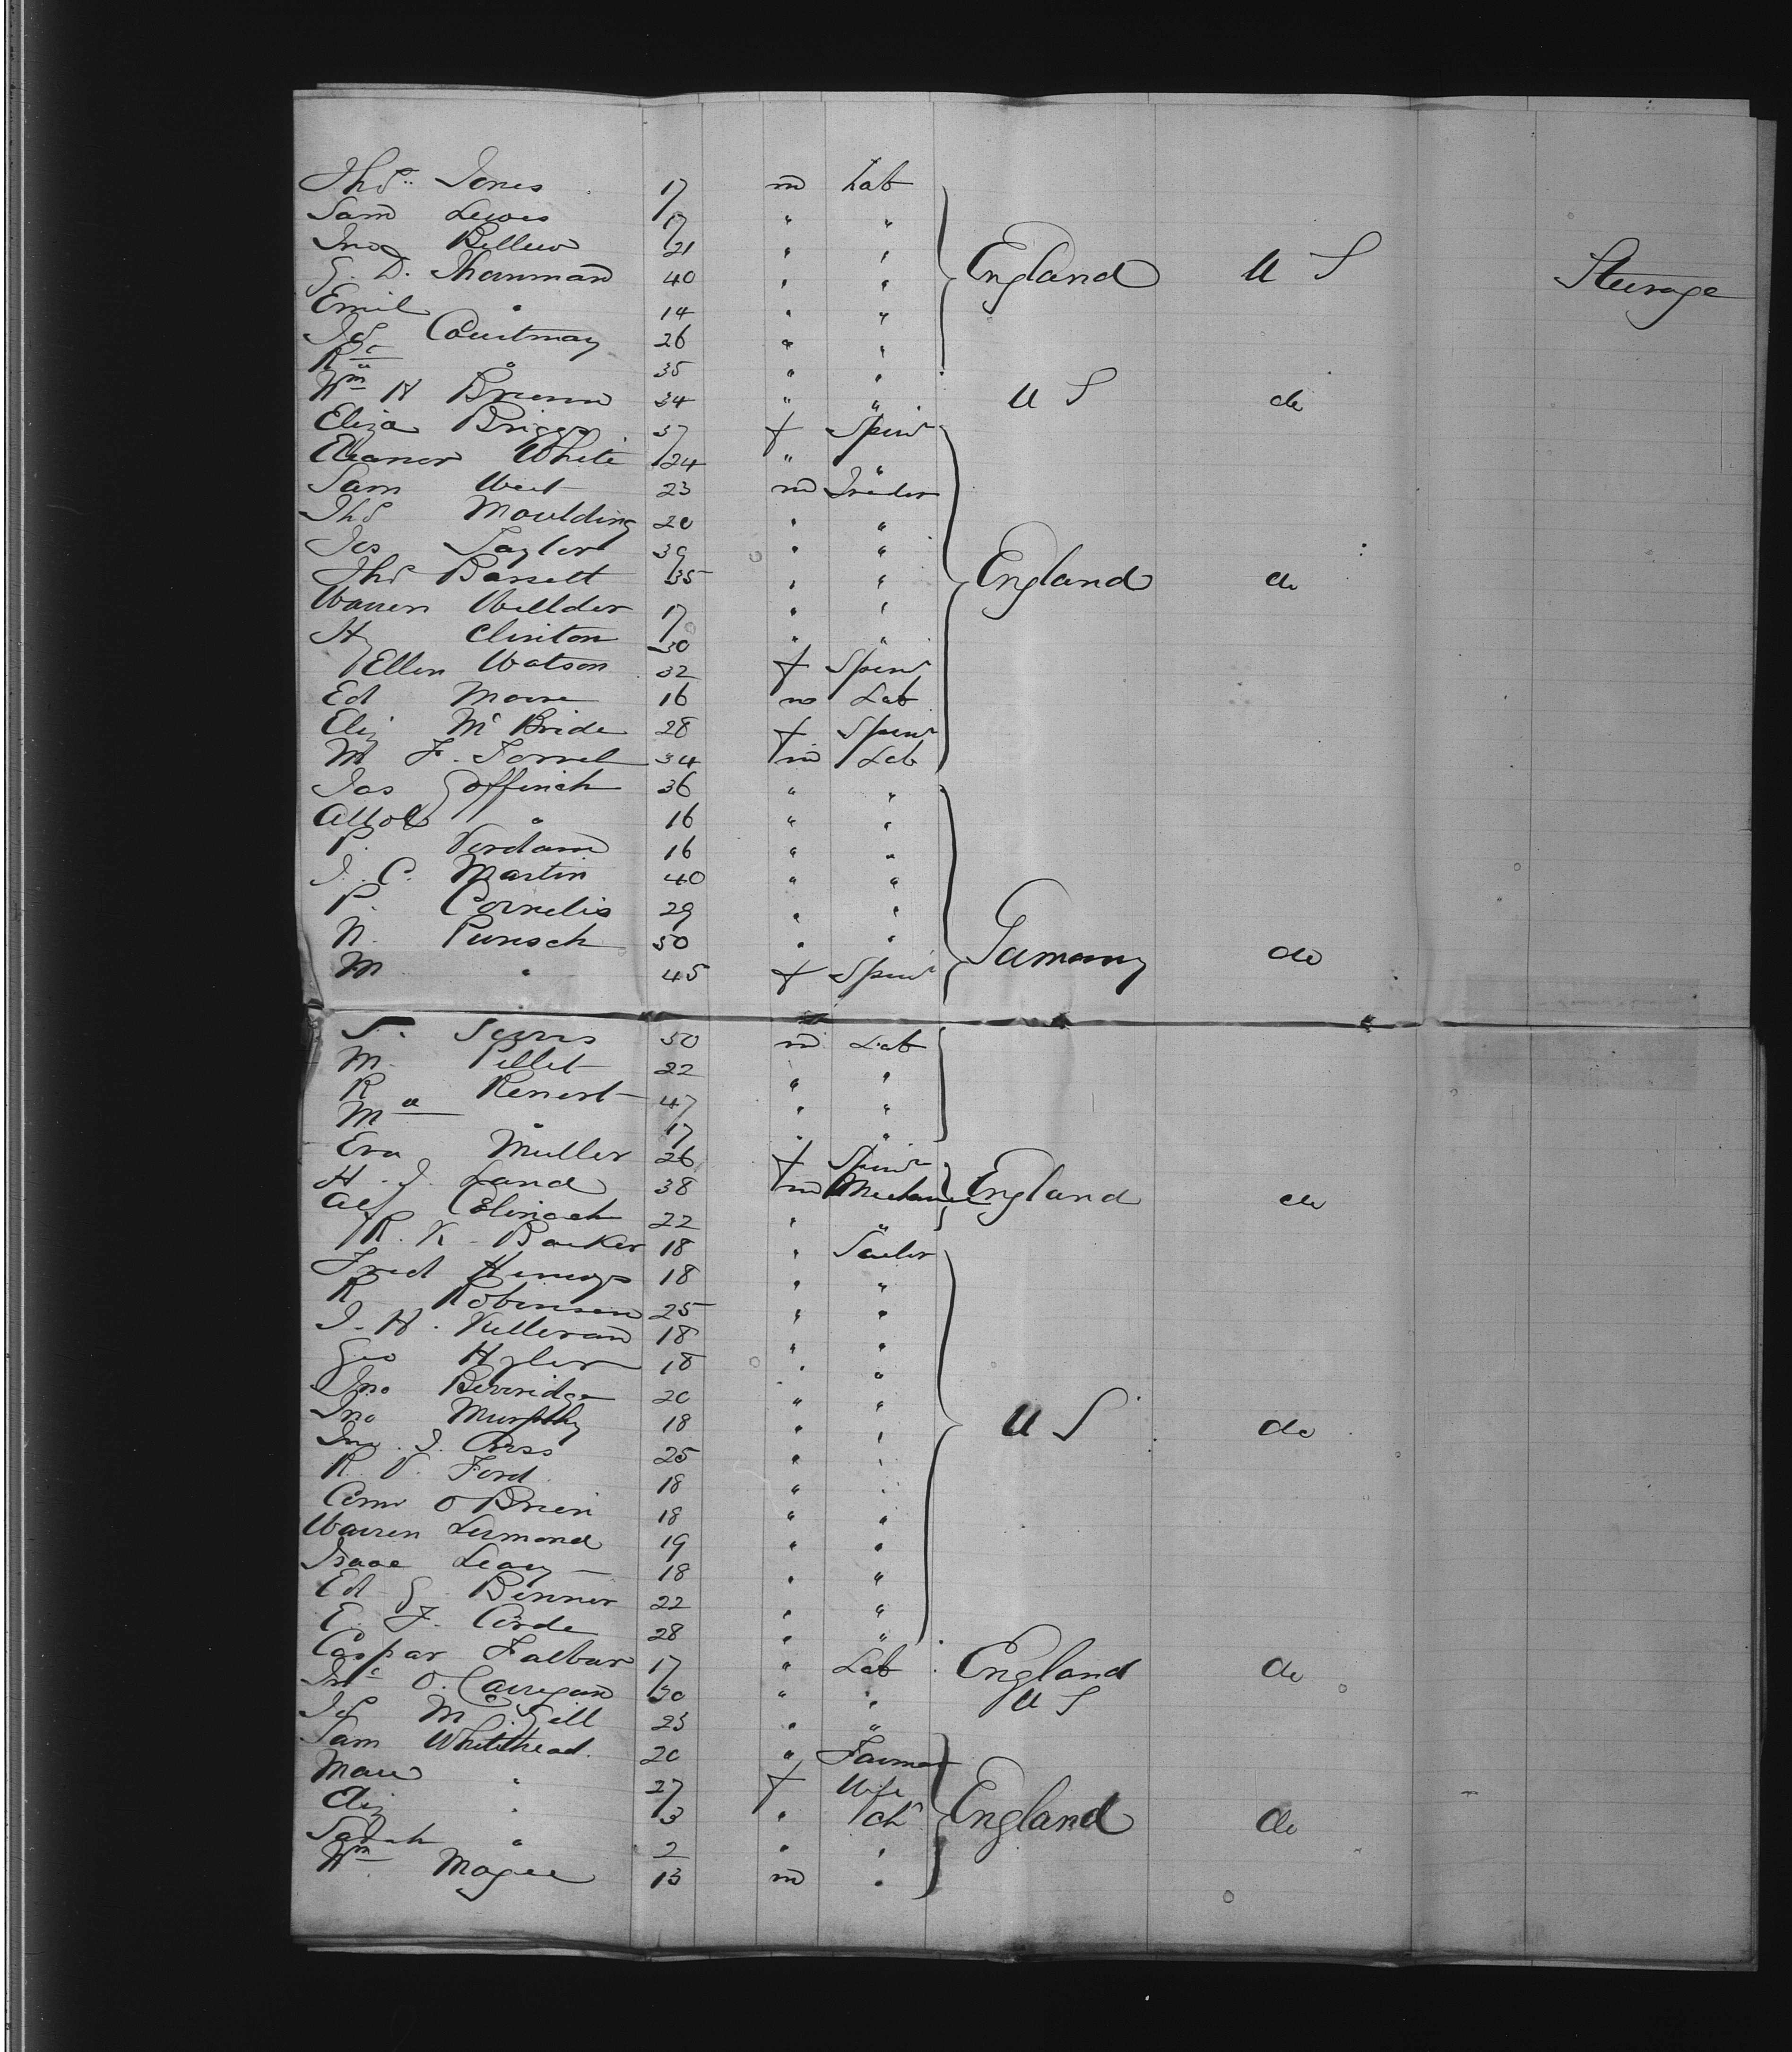 Thos Jones 17 m Lab
Sam Lewes 17 " "
Jno Bellew 21 " "
G. D. Thanman 40 " " England U S Steerage
Emil " 14 " "
Jos Courtnay 26 " "
Rd " 35 " "
Wm H Brown 34 " " U S do
Eliza Briggs 37 f Spinr
Eleanor White 24 " "
Sam West 23 m Trader
Thos Moulding 20 " "
Jos Taylor 39 " "
Thos Bassett 35 " " England do
Warren Willder 17 " "
Hy Clinton 30 " "
Ellen Watson 32 f Spinr
Ed Moore 16 m Lab
Eliz McBride 28 f Spinr
M F. Torrel 34 m Lab
Jas Goffinch 36 " "
" 16 " "
P. Verdam 16 " "
J. C. Martin 40 " "
P. Cornelis 29 " "
N. Punsch 50 " " Germany do
M " 45 f Spinr
S. 50 m Lab
M. Pellet 22 " "
R Renert 47 " "
M " 17 " "
Eva Muller 26 f Spinr
H. J. Land 38 m Mechanic England do
Alf 22 " "
R. K. Barker 18 " Sailor
Fred 18 " "
R Robinson 25 " "
J. H. Killeran 18 " "
Geo Hyler 18 " "
Jno Beveridge 20 " "
Jno Murphy 18 " " U S do
Jno. J. Cross 25 " "
R. V. Ford 18 " "
Corns O'Brien 18 " "
Warren Lermond 19 " "
Isaac Leary 18 " "
Ed G. Benner 22 " "
E. F. Corde 28 " "
Caspar Falbur 17 " Lab England do
O. Carregan 30 " " U S
Jos McGill 23 " "
Sam Whitehead 20 " Farmer
" 27 f Wife
Eliz " 3 " Ch England do
Sarah " 2 " "
Wm Magee 13 m "